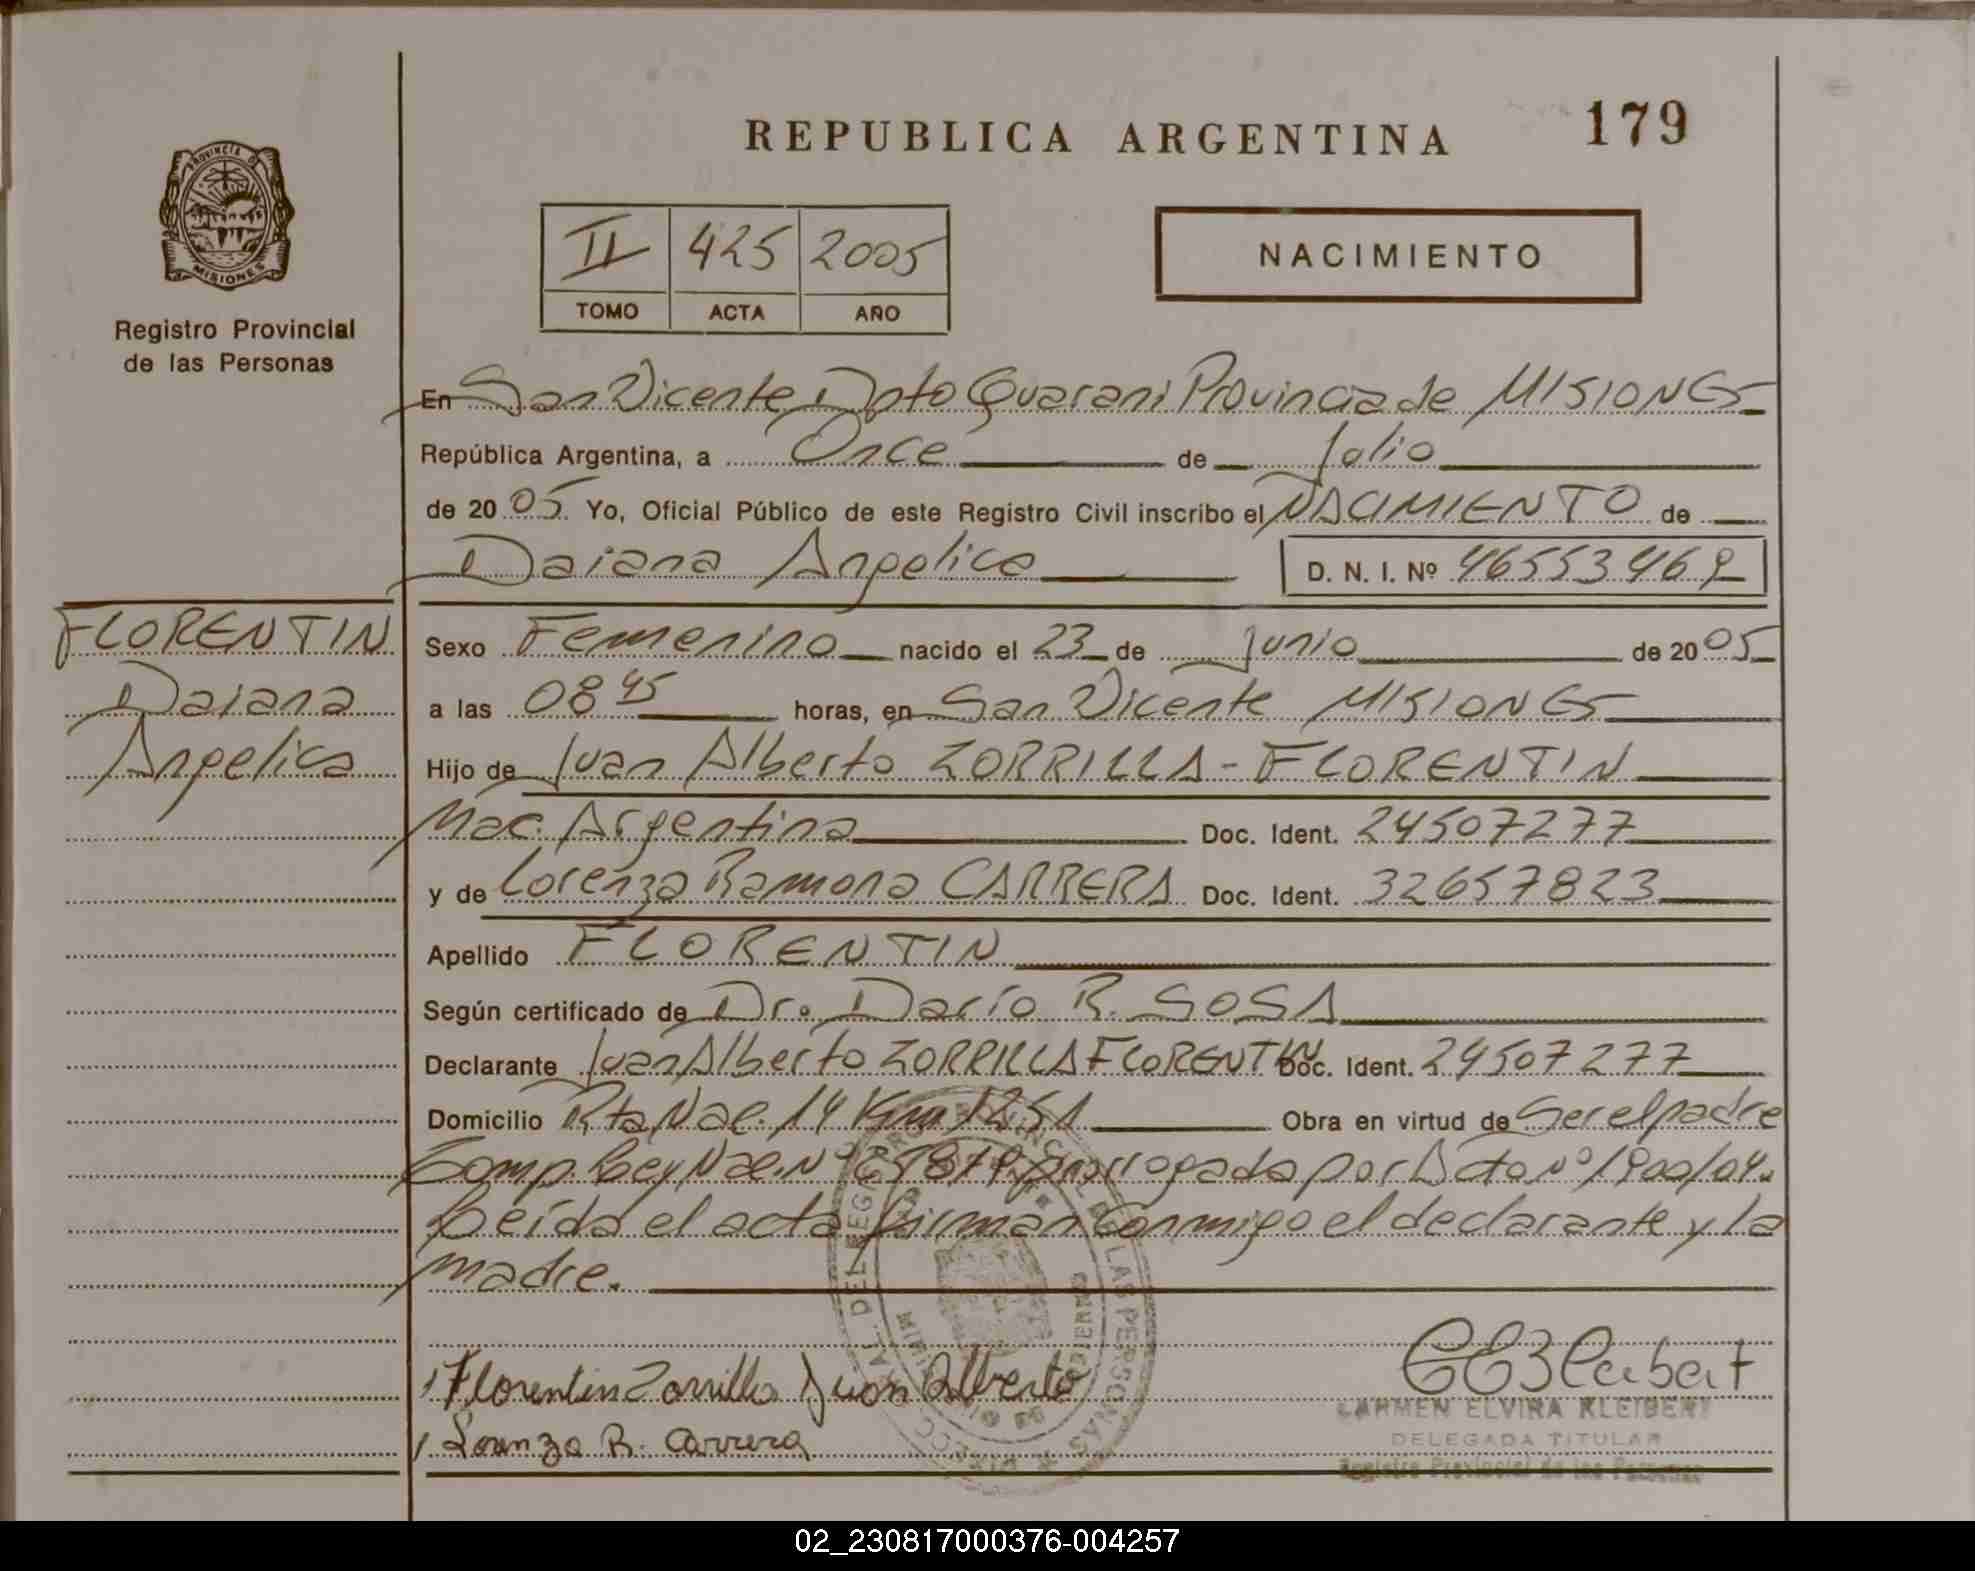 REPUBLICA ARGENTINA
179
PROVINCIA DE
MISIONES
Registro Provincial
de las Personas
II 425 2005
TOMO ACTA AÑO
NACIMIENTO
En San Vicente Dpto Guarani Provincia de MISIONES
República Argentina, a Once de Julio
de 2005 Yo, Oficial Público de este Registro Civil inscribo el NACIMIENTO de
Daiana Angelica D. N. I. Nº 46553469
FLORENTIN
Daiana
Angelica
Sexo Femenino nacido el 23 de Junio de 2005
a las 08 45 horas, en San Vicente MISIONES
Hijo de Juan Alberto ZORRILLA - FLORENTIN
Nac. Argentina Doc. Ident. 24507277
y de Lorenza Ramona CARRERA Doc. Ident. 32657823
Apellido FLORENTIN
Según certificado de Dr. Darío R. SOSA
Declarante Juan Alberto ZORRILLA FLORENTIN Doc. Ident. 24507277
Domicilio Rta Nac. 14 Km 1251 Obra en virtud de Ser el padre
Comp. Ley Nac. Nº prorrogada por Dcto Nº 1900/04.
Leída el acta firman conmigo el declarante y la
madre.
Florentin Zorrilla Juan Alberto
Lorenza R. Carrera
CARMEN ELVIRA KLEIBERT
DELEGADA TITULAR
Registro Provincial de las Personas
02_230817000376-004257